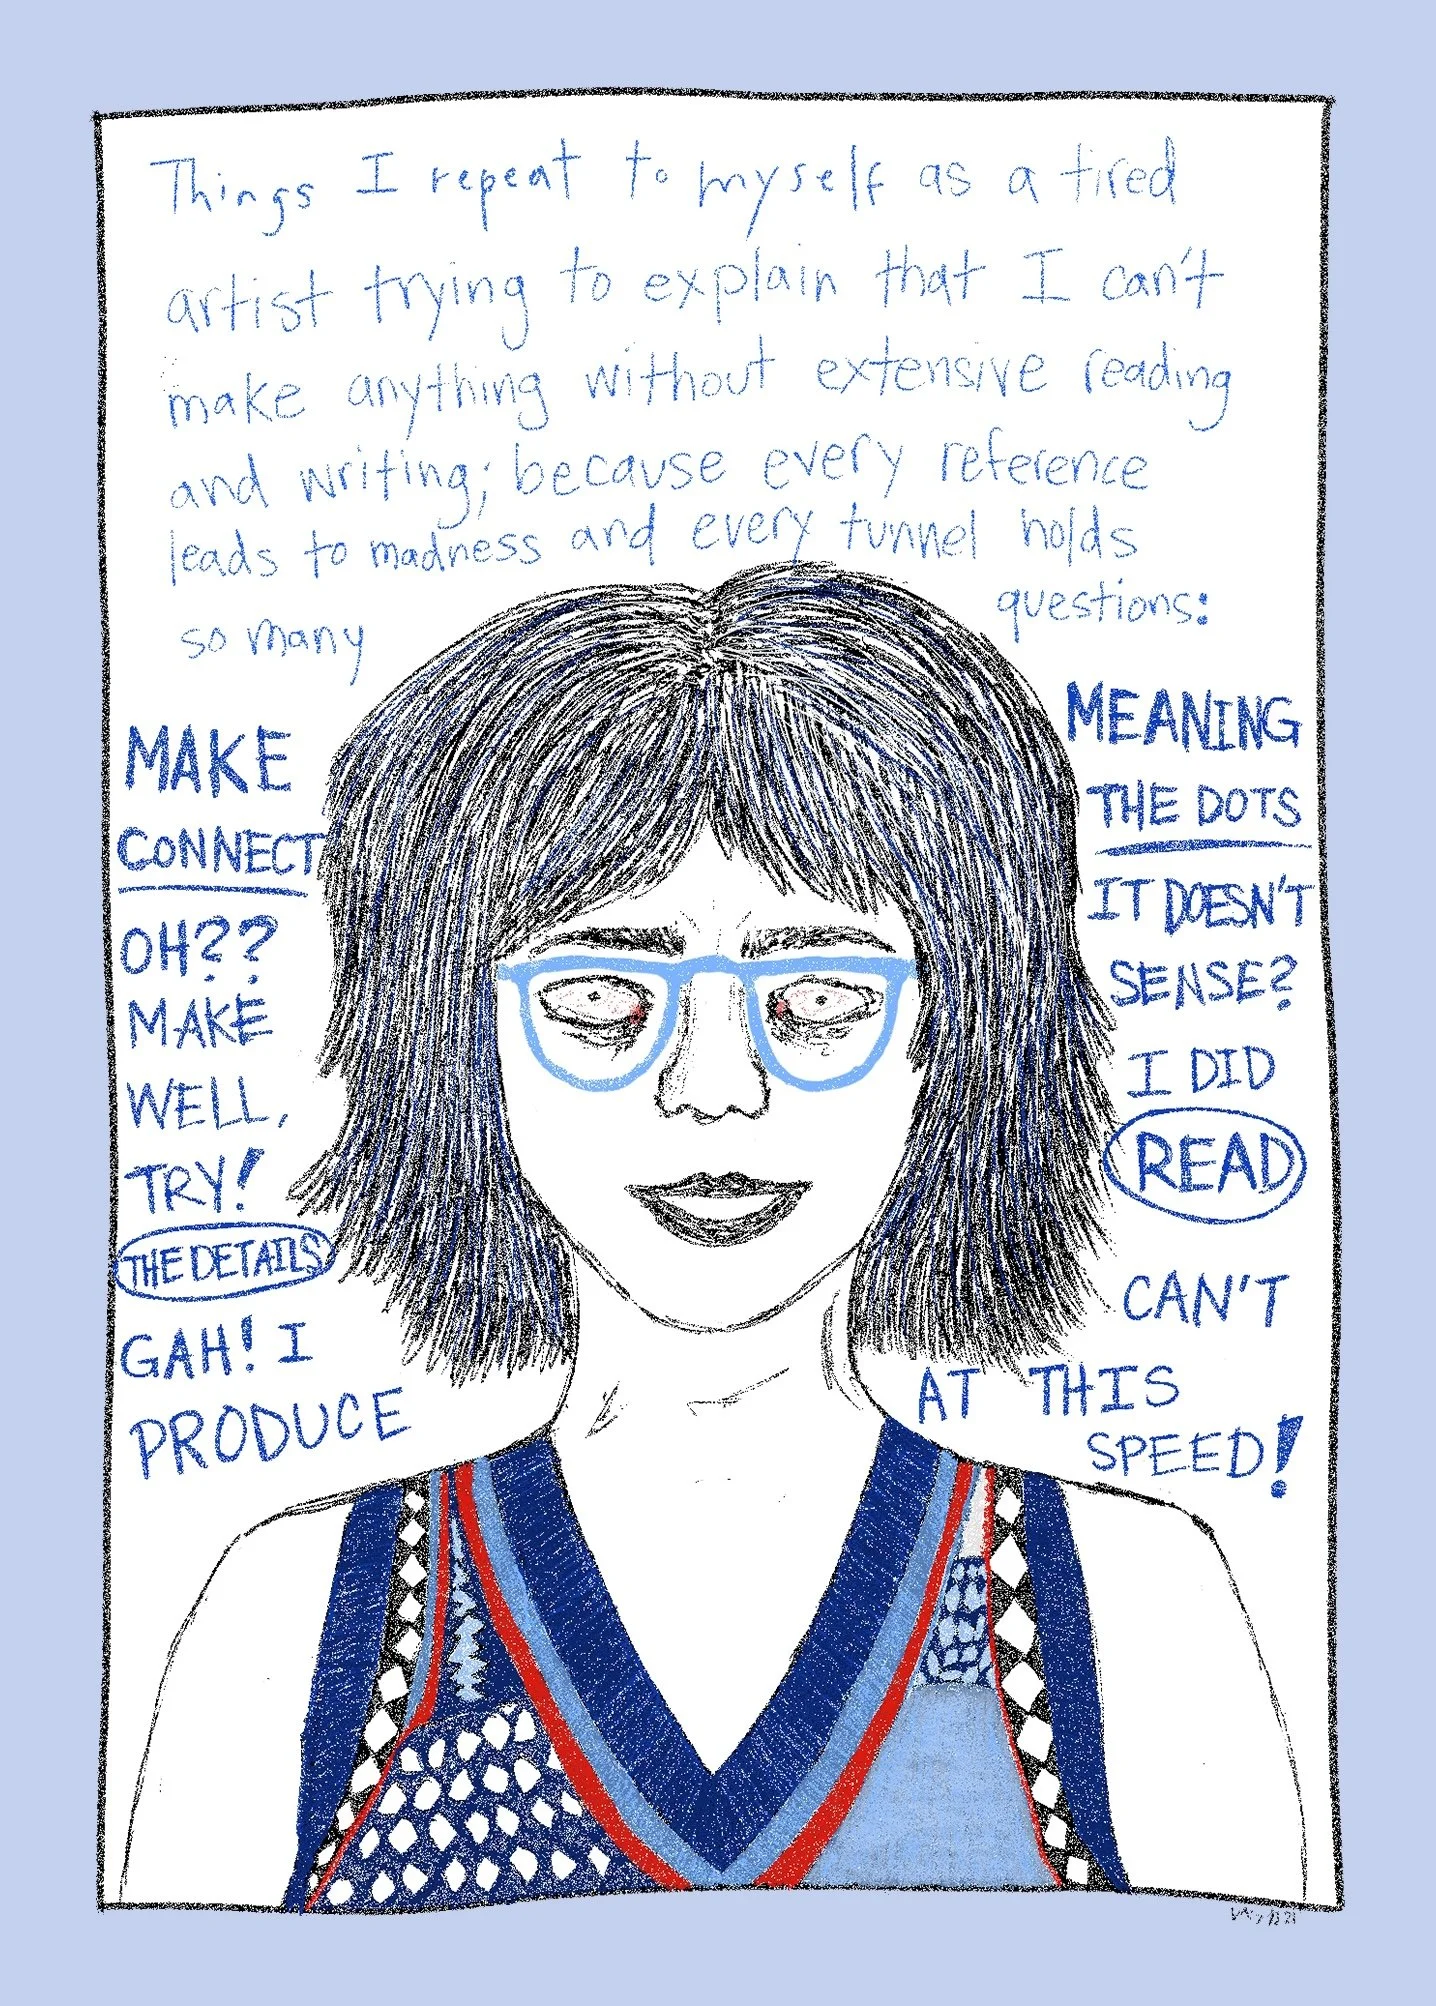 Things I repeat to myself as a tired
artist trying to explain that I can't
make anything without extensive reading
and writing; because every reference
leads to madness and every tunnel holds
so many questions:
MAKE MEANING
CONNECT THE DOTS
OH?? IT DOESN'T
MAKE SENSE?
WELL, I DID
TRY! READ
THE DETAILS
GAH! I CAN'T
PRODUCE AT THIS
SPEED!